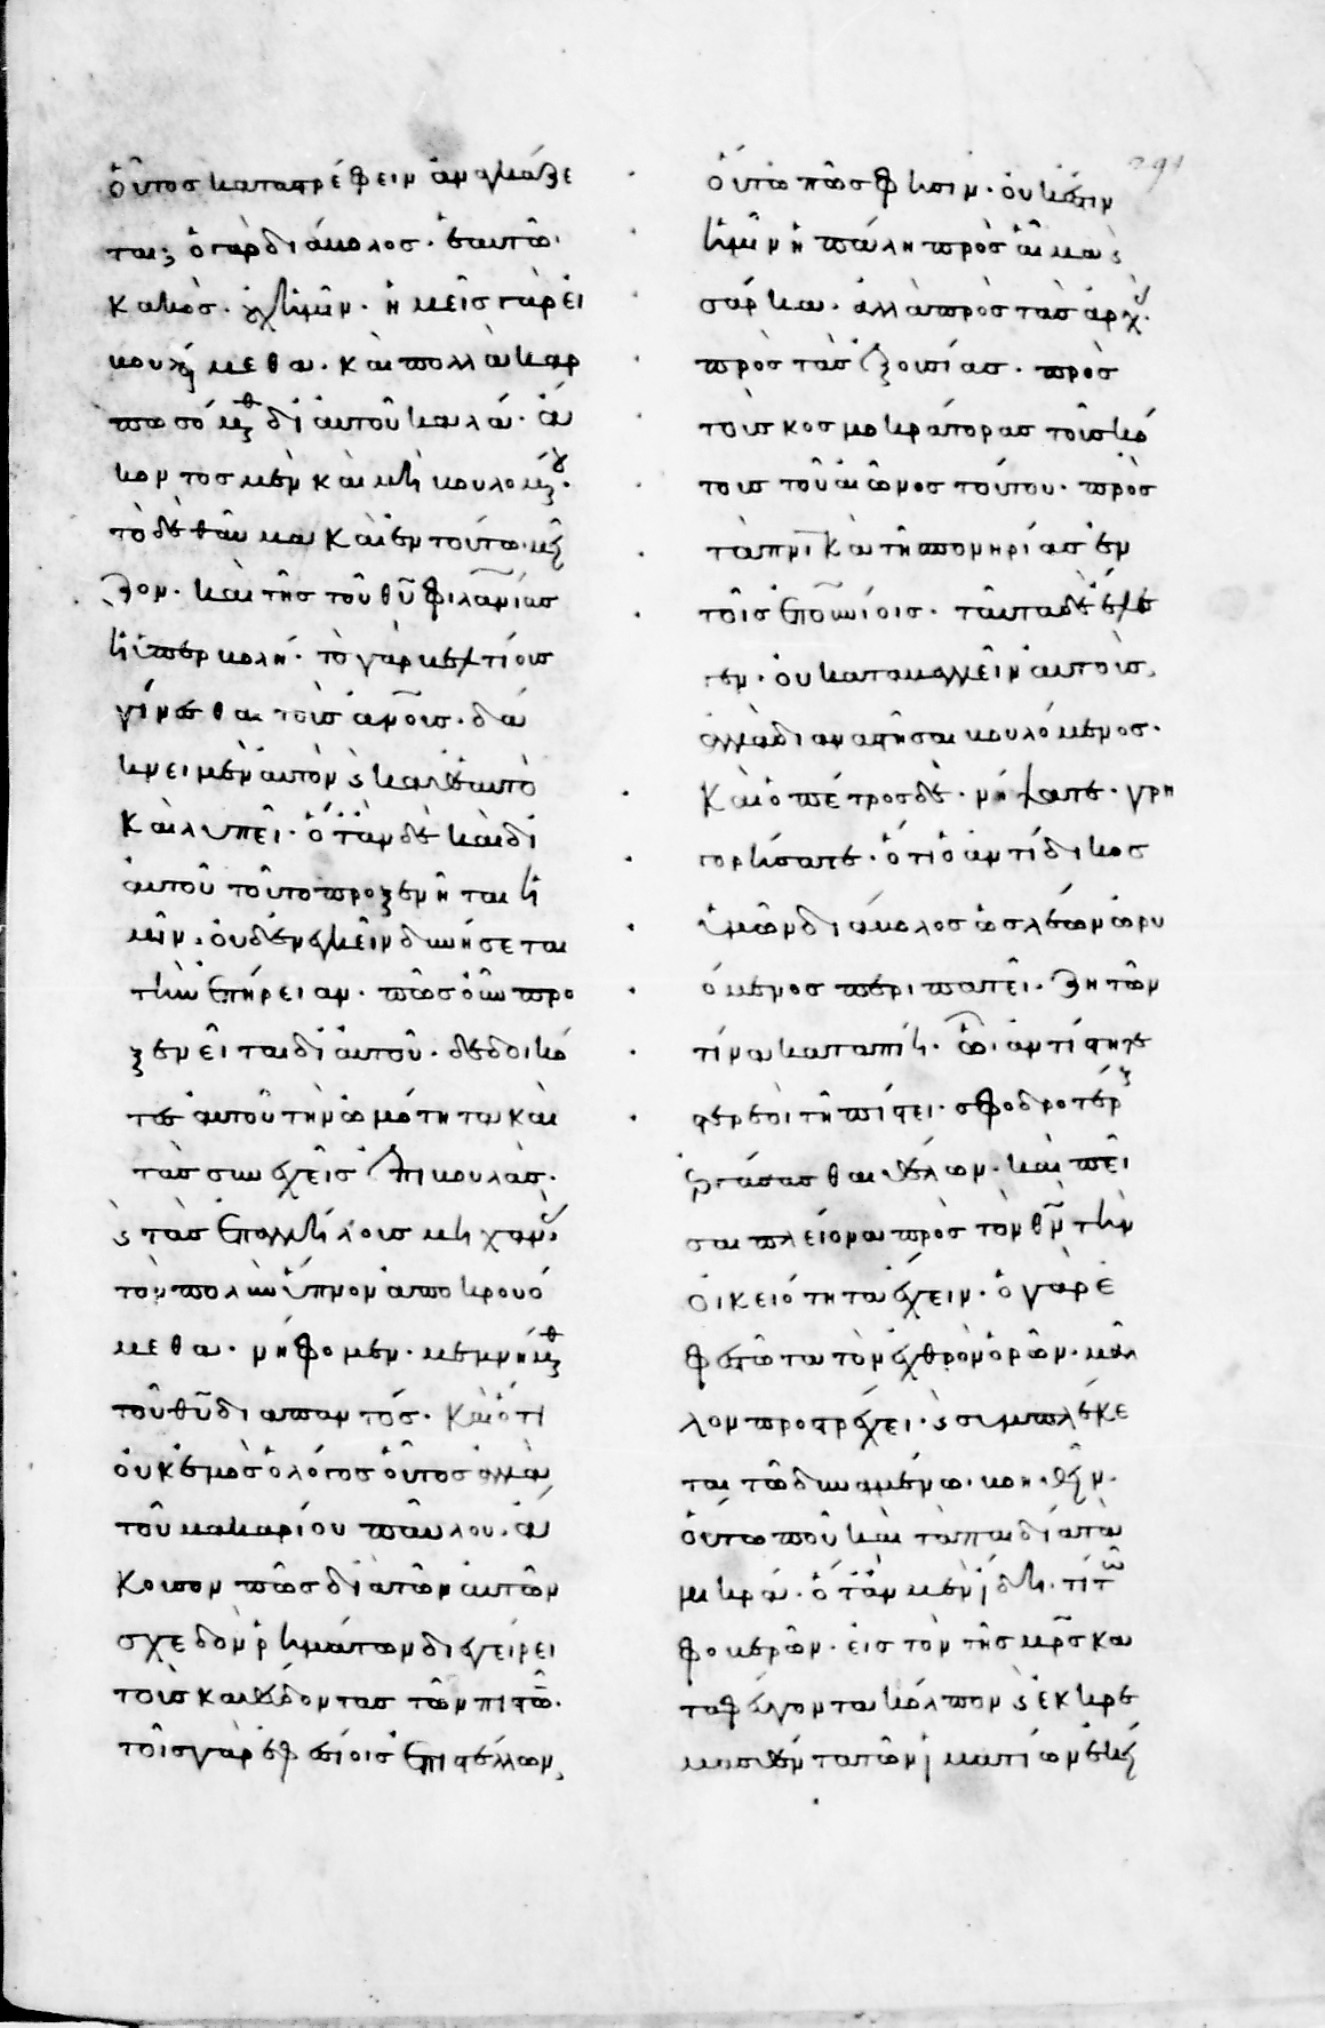 οὗτος καταστρέφειν ἀναγκάζε
ται· ὁ γὰρ διάβολος. ἑαυτῶ
κακὸς. οὐχ ἡμῖν. ἡμεῖς γὰρ εἰ
βουλόμεθα. καὶ πολλὰ καρ
πωσόμεθα δι αὐτοῦ καλά. ἄ
κοντος μὲν καὶ μὴ βουλομένου.
τὸ δὲ θαῦμα κἀν τούτω μεῖ
ζον. καὶ τῆς τοῦ θυ φιλανίας
ἡ ὑπερβολή. τὸ γὰρ βελτίους
γίνεσθαι τοὺς ἀνους. δά
κνει μὲν αὐτὸν καὶ καθ ἑαυτὸ
καὶ λυπεῖ. ὅταν δὲ καὶ δι
αὐτοῦ τοῦτο προξενῆται ἡ
μῖν. οὐδὲ ἐνεγκεῖν δυνήσεται
τὴν ἐπήρειαν. πῶς οὖν προ
ξενεῖται δι αὐτοῦ. δεδοικό
τες αὐτοῦ τὴν ὠμότητα καὶ
τὰς συνεχεῖς ἐπιβουλὰς.
καὶ τὰς ἐπαλλήλους μηχανὰς
τὸν πολὺν ὕπνον ἀποκρουό
μεθα. νήφομεν. μεμνήμεθα
τοῦ θυ διαπαντός. καὶ ὅτι
οὐκ ἐμὸς ὁ λόγος οὗτος ἀλλὰ
τοῦ μακαρίου παύλου. ἄ
κουσον πῶς δι αὐτῶν
σχεδὸν ῥημάτων διεγείρει
τοὺς καθεύδοντας τῶν πιστῶν.
τοῖς γὰρ ἐφεσίοις ἐπιστέλλων,
οὕτω πῶς φησιν. οὐκ ἔστιν
ἡμῖν ἡ πάλη πρὸς αἷμα καὶ
σάρκα. ἀλλὰ πρὸς τὰς ἀρχὰς.
πρὸς τὰς ἐξουσίας. πρὸς
τοὺς κοσμοκράτορας τοῦ σκό
τους τοῦ αἰῶνος τούτου. πρὸς
τὰ πνικὰ τῆς πονηρίας ἐν
τοῖς ἐπουνίοις. ταῦτα δὲ ἔλε
γεν. οὐ καταβαλεῖν αὐτοὺς,
ἀλλὰ διαναστῆσαι βουλόμενος.
καὶ ὁ πέτρος δὲ. νήψατε. γρη
γορήσατε. ὅτι ὁ ἀντίδικος
ὑμῶν διάβολος ὡς λέων ὠρυ
όμενος περιπατεῖ. ζητῶν
τίνα καταπίη. ὧ ἀντίστητε
στερεοὶ τῆ πίστει. σφοδροτέρους
ἐργάσασθαι θέλων. καὶ πεῖ
σαι πλείονα πρὸς τὸν θν τὴν
οἰκειότητα ἔχειν. ὁ γὰρ ἐ
φεστῶτα τὸν ἐχθρὸν ὁρῶν. μᾶλ
λον προστρέχει. καὶ συμπλέκε
ται τῶ δυναμένω βοηθεῖν.
οὕτω που καὶ τὰ παιδία τὰ
μικρά. ὅταν μὲν ἴδη. τί τῶν
φοβερῶν. εἰς τὸν τῆς μρς κα
ταφεύγοντα κόλπον καὶ ἐκκρε
μασθέντα τῶν ἱματίων ἐκεί